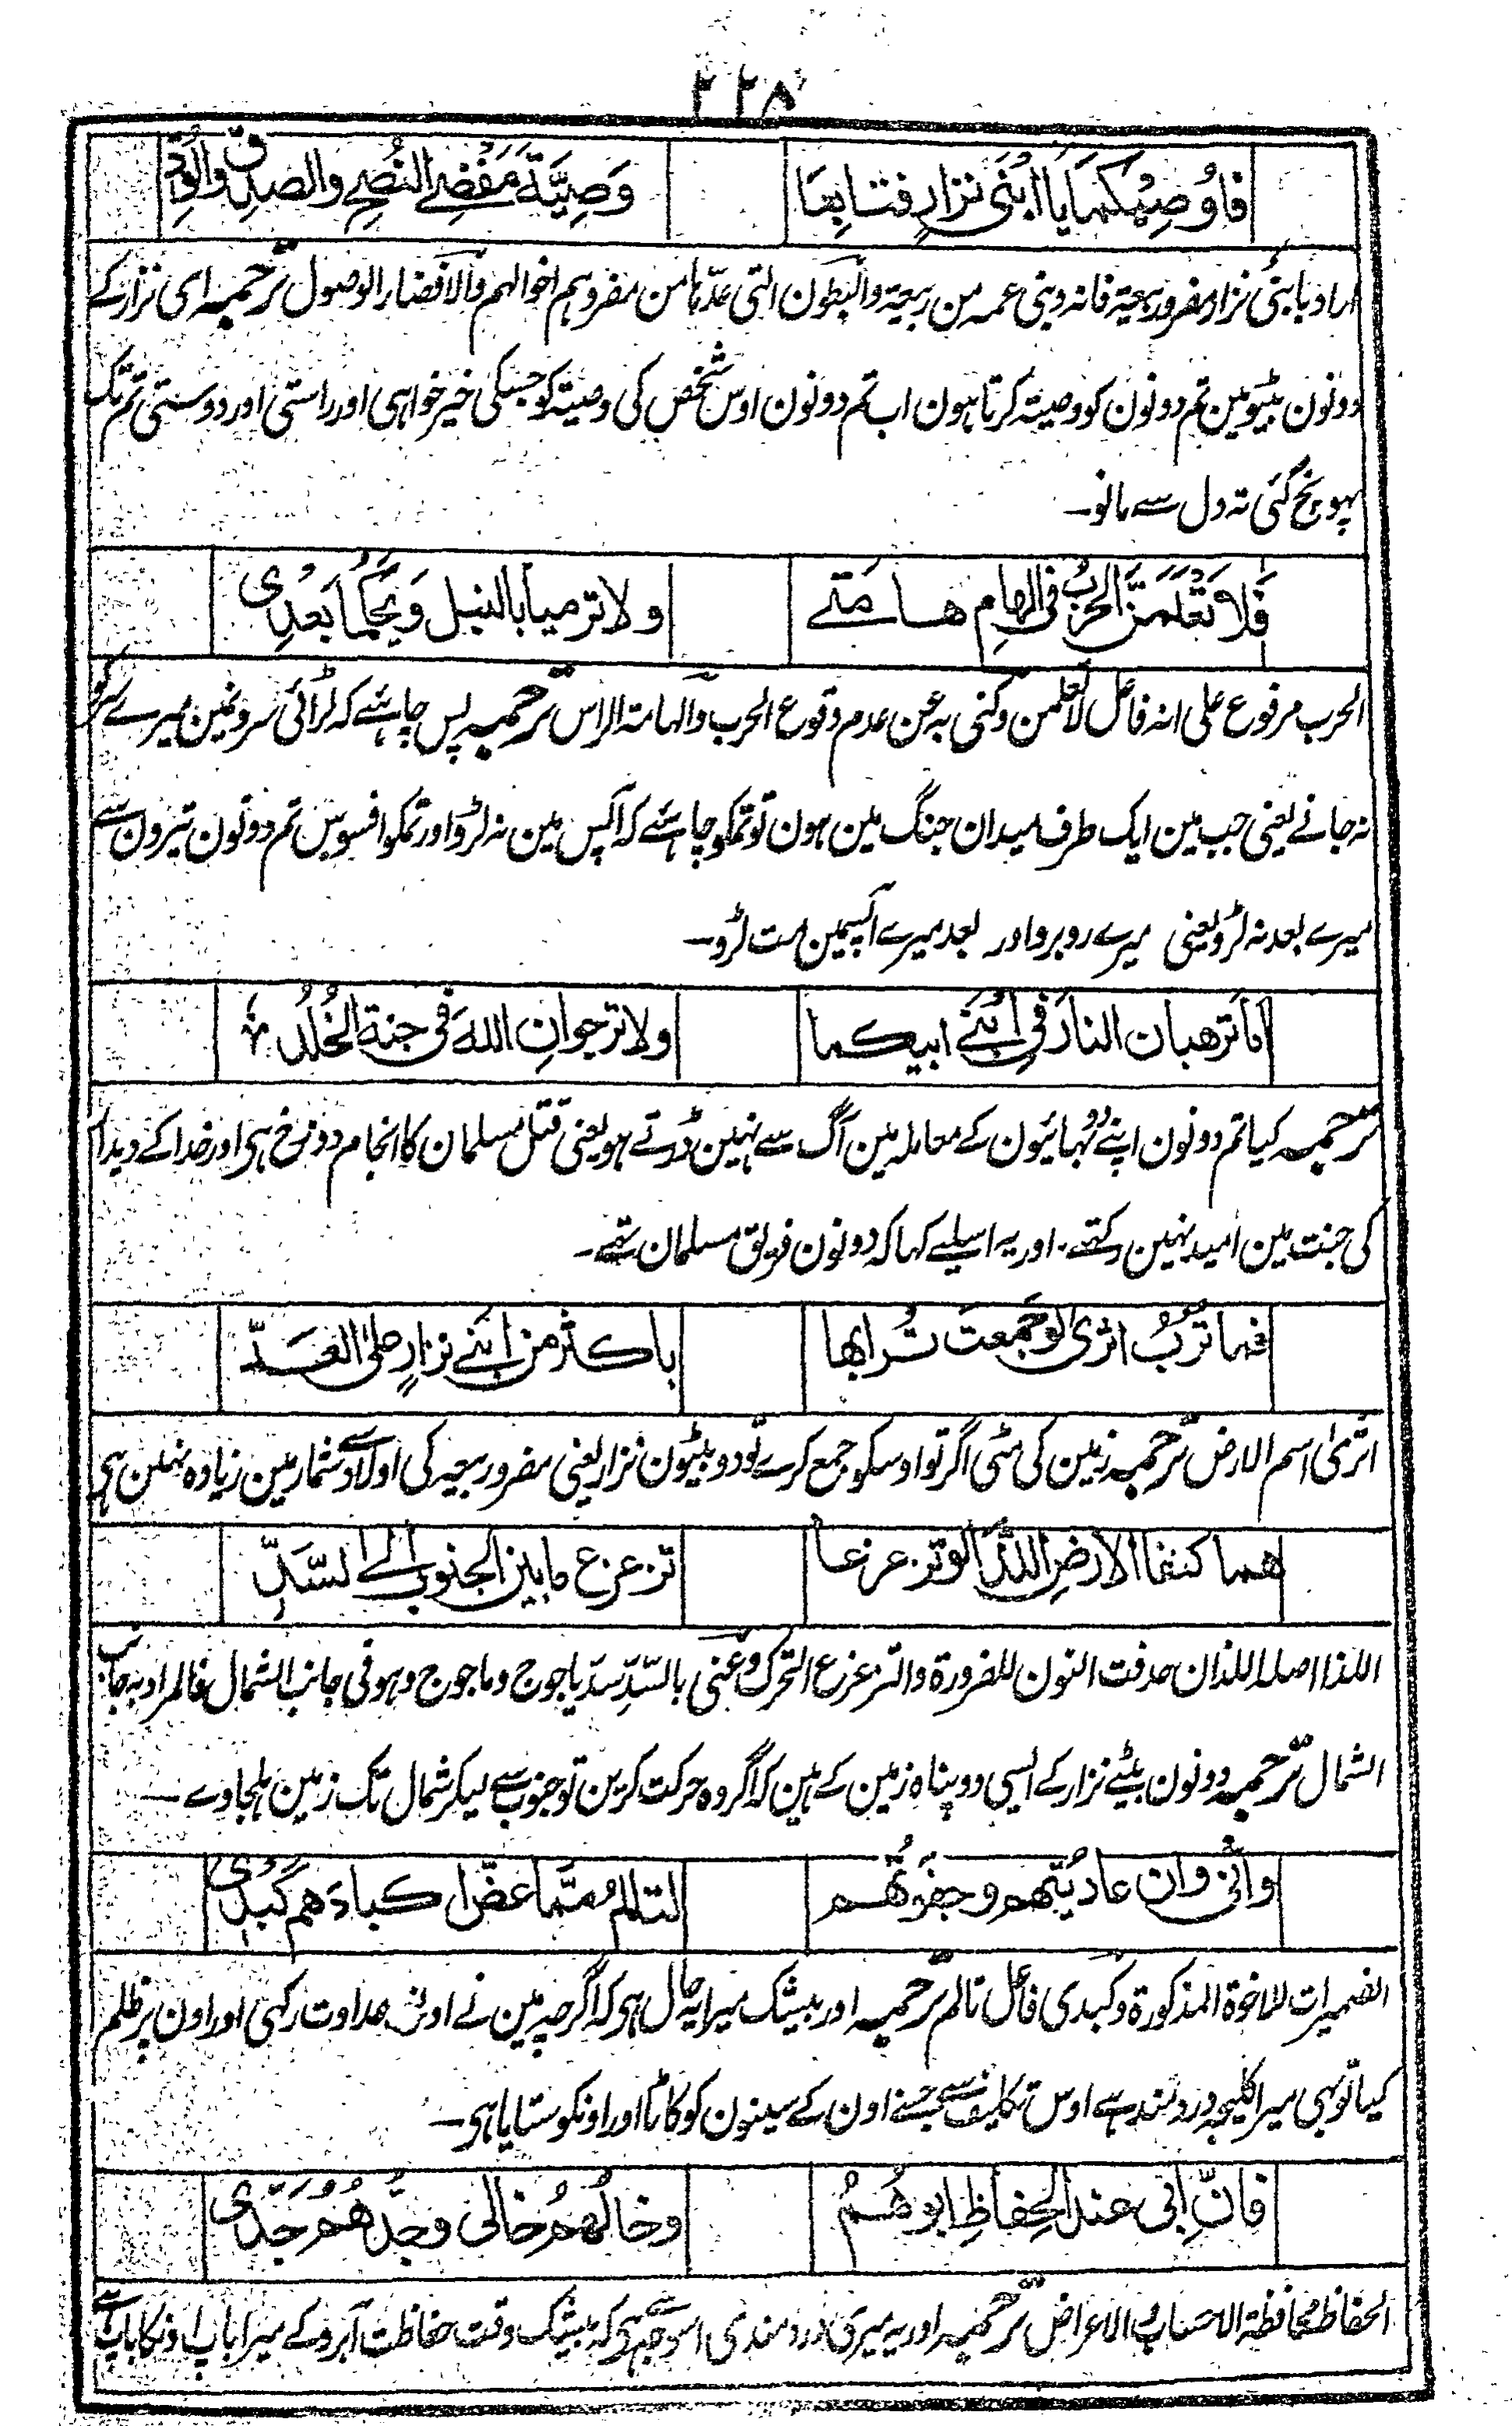 ۲۲۸
فَاُوصِيْكُمَا يَا ابْنَىْ نِزَارٍ فَتَابِعَا وَصِيَّةَ مُفْضِى النُّصْحِ وَالصِدْقِ وَالوُدِّ
اراد بابنی نزار مضر و ربیعة فانه و بنی عمه من ربیعة والبطون التی عدّہا من مضر وہم اخوالہم والافضاء الوصول ترجمہ ای نزار کے
دونون بیٹیو مین تم دونون کو وصیتہ کرتا ہون اب تم دونون اوس شخص کی وصیتہ کو جسکی خیر خواہی اور راستی اور دوستی تم تک
پہونچ گئی تہ دل سے مانو۔
فَلَا تَعْلَمَنَّ الحَرْبُ فى الهامِ هامَتى ولا ترميا بالنبل وَيْحَكُما بَعْدِى
الحرب مرفوع علی انہ فاعل لا تعلمن وکنی بہ عن عدم وقوع الحرب والہامۃ الراس ترجمہ پس چاہئے کہ لڑائی سرونمین میرے سر کو
نہ جانے یعنی جب مین ایک طرف میدان جنگ مین ہون تو تمکو چاہئے کہ آپس مین نہ لڑو اور تمکو افسوس تم دونون تیرون سے
میرے بعد نہ لڑو یعنی میرے روبرو اور بعد میرے آپسمین مت لڑو۔
اَمَا تَرهبان النارَ فى ابْنَىْ ابيكما ولا ترجوانِ اللهَ فى جنة الخُلْدِ
ترجمہ کیا تم دونون اپنے دو بہائیون کے معاملہ مین آگ سے نہین ڈرتے ہو یعنی قتل مسلمان کا انجام دوزخ ہی اور خدا کے دیدار
کی جنت مین امید نہین رکھتے۔ اور یہ اسلیے کہا کہ دونون فریق مسلمان تھے۔
فما تُرْبُ اثرى لو جَمَعتَ تُرابها باكثر من ابنَىْ نزارٍ على العَدِّ
اثریٰ اسم الارض ترجمہ زمین کی مٹی اگر تو اوسکو جمع کرے تو دو بیٹیون نزار یعنی مضر و ربیعہ کی اولاد سے شمار مین زیادہ نہین ہی
هما كنفا الارضِ اللذا لو تزعزعا تزعزع ما بين الجنوبِ الى السَّدِّ
اللذا اصلہ اللذان حذفت النون للضرورة والتزعزع التحرک وعنی بالسّدّ سدّ یاجوج وماجوج وہو فی جانب الشمال فالمراد بہ جانب
الشمال ترجمہ دونون بیٹے نزار کے ایسی دو پناہ زمین کے ہین کہ اگر وہ حرکت کرین تو جنوب سے لیکر شمال تک زمین ہلجاوے۔
وانّى وان عاديتُهم وجفوتُهم لتألم مِمَّا عضَّ اكبادَهم كَبِدى
الضمیرات للاخوة المذکورة وکبدی فاعل تالم ترجمہ اور بیشک میرا یہ حال ہی کہ اگرچہ مین نے اونسے عداوت رکہی اور اون پر ظلم
کیا تو بہی میرا کلیجہ دردمند ہے اوس تکلیف سے جسنے اون کے سینون کو کاٹا اور اونکو ستایا ہی۔
فانّ ابى عند الحِفاظِ ابوهُمُ وخالُهُمُ خالى وجدُّهُمُ جَدّى
الحفاظ محافظۃ الاحساب والاعراض ترجمہ اور یہ میری دردمندی اس وجہ سے ہی کہ بیشک وقت حفاظت آبرو کے میرا باپ اونکا باپ ہے